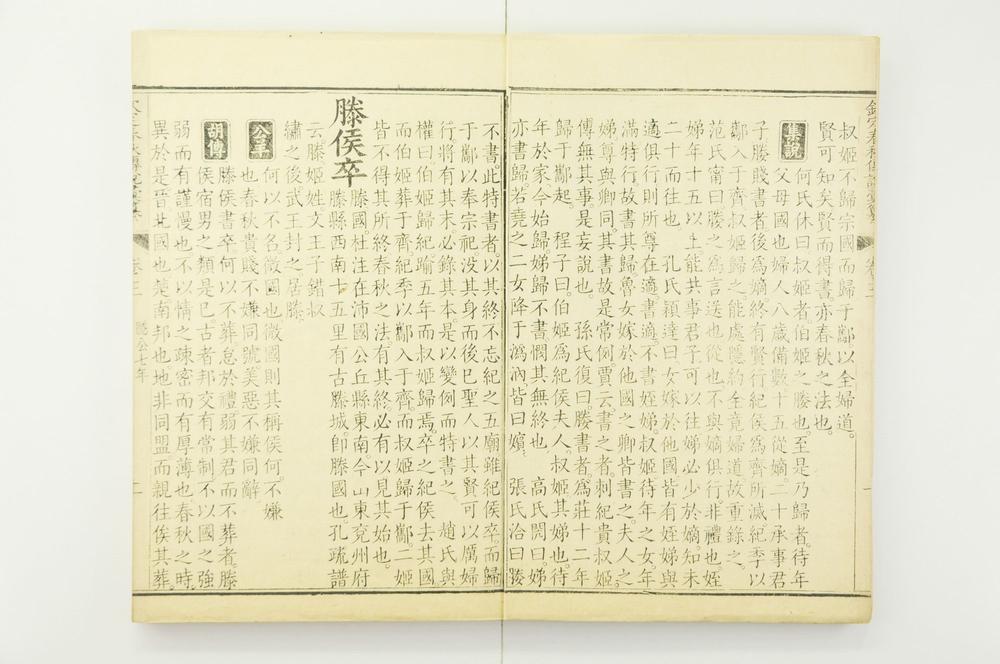 欽定春秋傳說彙纂 卷三 一
叔姬不歸宗國而歸于酅以全婦道。
賢可知矣賢而得書亦春秋之法也。
集說 何氏休曰叔姬者伯姬之媵也。至是乃歸者。待年
父母國也。婦人八歲備數十五從嫡。二十承事君
子媵賤書者後爲嫡終有賢行紀侯爲齊所滅紀季以
酅入于齊叔姬歸之能處隱約全竟婦道故重錄之。
范氏甯曰媵之爲言送也從也。不與嫡俱行。非禮也姪
娣年十五以上能共事君子可以往娣必少於嫡知未
二十而往也 孔氏穎達曰女嫁於他國皆有姪娣與
適俱行則所尊在適書適不書姪娣。叔姬待年之女年
滿特行故書其歸魯女嫁於他國之卿皆書之。夫人之
娣尊與卿同其書故是常例賈云書之者刺紀貴叔姬
傳無其事是妄說也。 孫氏復曰。媵書者爲莊十二年
歸于酅起。 程子曰。伯姬爲紀侯夫人。叔姬其娣也。待
年於家今始歸娣歸不書。憫其無終也 高氏閌曰娣
亦書歸若堯之二女降于溈汭皆曰嬪 張氏洽曰媵
不書此特書者。以其終不忘紀之五廟雖紀侯卒。而歸
于酅以奉宗祀。没其身而後已聖人以其賢可以厲婦
行將有其末必錄其本是以變例而特書之。 趙氏與
權曰伯姬歸紀踰五年而叔姬歸焉。卒之紀侯去其國
而伯姬葬于齊紀季以酅入于齊。而叔姬歸于酅。二姬
皆不得其所終春秋之法有其終必有以見其始也。
滕侯卒 滕國杜注在沛國公丘縣東南。今山東兖州府
滕縣西南十五里有古滕城卽滕國也孔疏譜
云滕姬姓文王子錯叔
繡之後武王封之居滕
公羊 何以不名微國也微國則其稱侯何。不嫌
也春秋貴賤不嫌同號美惡不嫌同辭
胡傳 滕侯書卒何以不葬怠於禮弱其君而不葬者滕
侯宿男之類是巳古者邦交有常制不以國之強
弱而有謹慢也不以情之疎密而有厚薄也。春秋之時。
異於是晉北國也楚南邦也地非同盟而親往俟其葬。
卷三 隱公七年 一